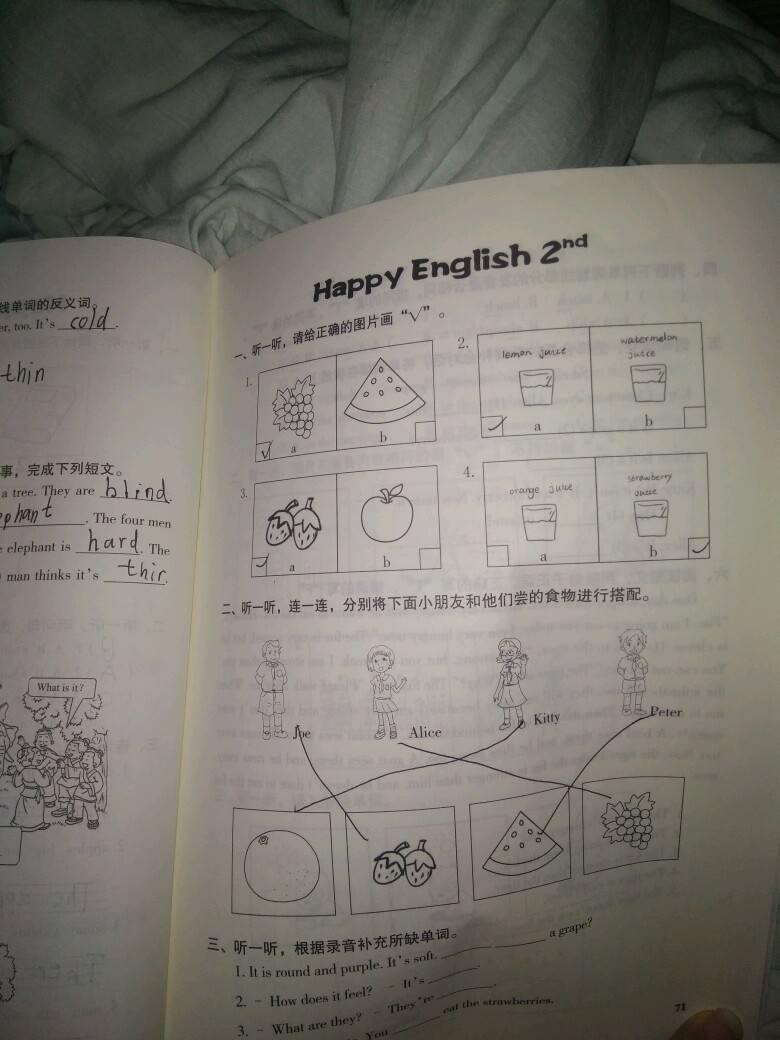 线单词的反义词。
er, too. It's cold.
thin
事，完成下列短文。
a tree. They are blind.
ephant. The four men
elephant is hard. The
man thinks it's thir.
What is it?
Happy English 2nd
一、听一听，请给正确的图片画“√”。
1.
√ a
b
2.
lemon juice
√ a
watermelon juice
b
3.
√ a
b
4.
orange juice
a
strawberry juice
b √
二、听一听，连一连，分别将下面小朋友和他们尝的食物进行搭配。
Joe Alice Kitty Peter
三、听一听，根据录音补充所缺单词。
1. It is round and purple. It's soft. ______ ______ a grape?
2. - How does it feel? - It's ______.
3. - What are they? - They're ______.
You ______ eat the strawberries.
71